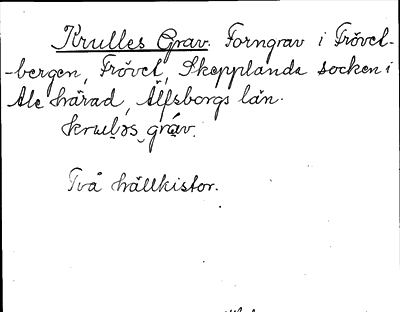 Krulles Grav. Forngrav i Frövet-
-bergen, Frövet, Skepplanda socken i
Ale härad, Älfsborgs län.
krulǝs grav.
Två hällkistor.